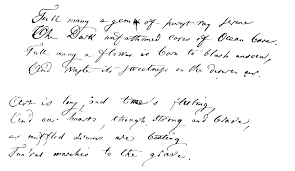 Full many a gem of purest ray serene
The Dark unfathomed caves of Ocean bear.
Full many a flower is born to blush unseen,
And waste its sweetness on the desert air.
Art is long, and time's fleeting,
And our hearts, though strong and brave,
as muffled drums are beating
Fun'ral marches to the grave.